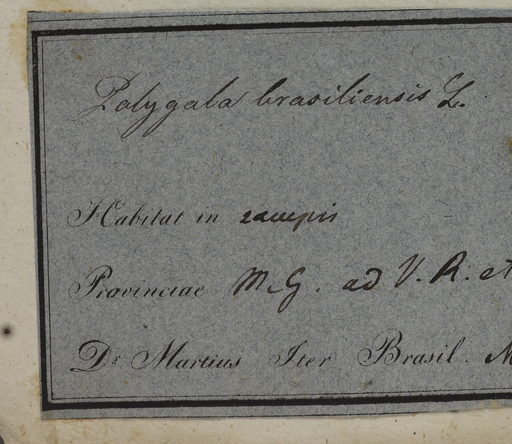 Polygala brasiliensis L.
Habitat in campis
Provinciae M. G. ad V. R. et
Dr Martius Iter Brasil. M